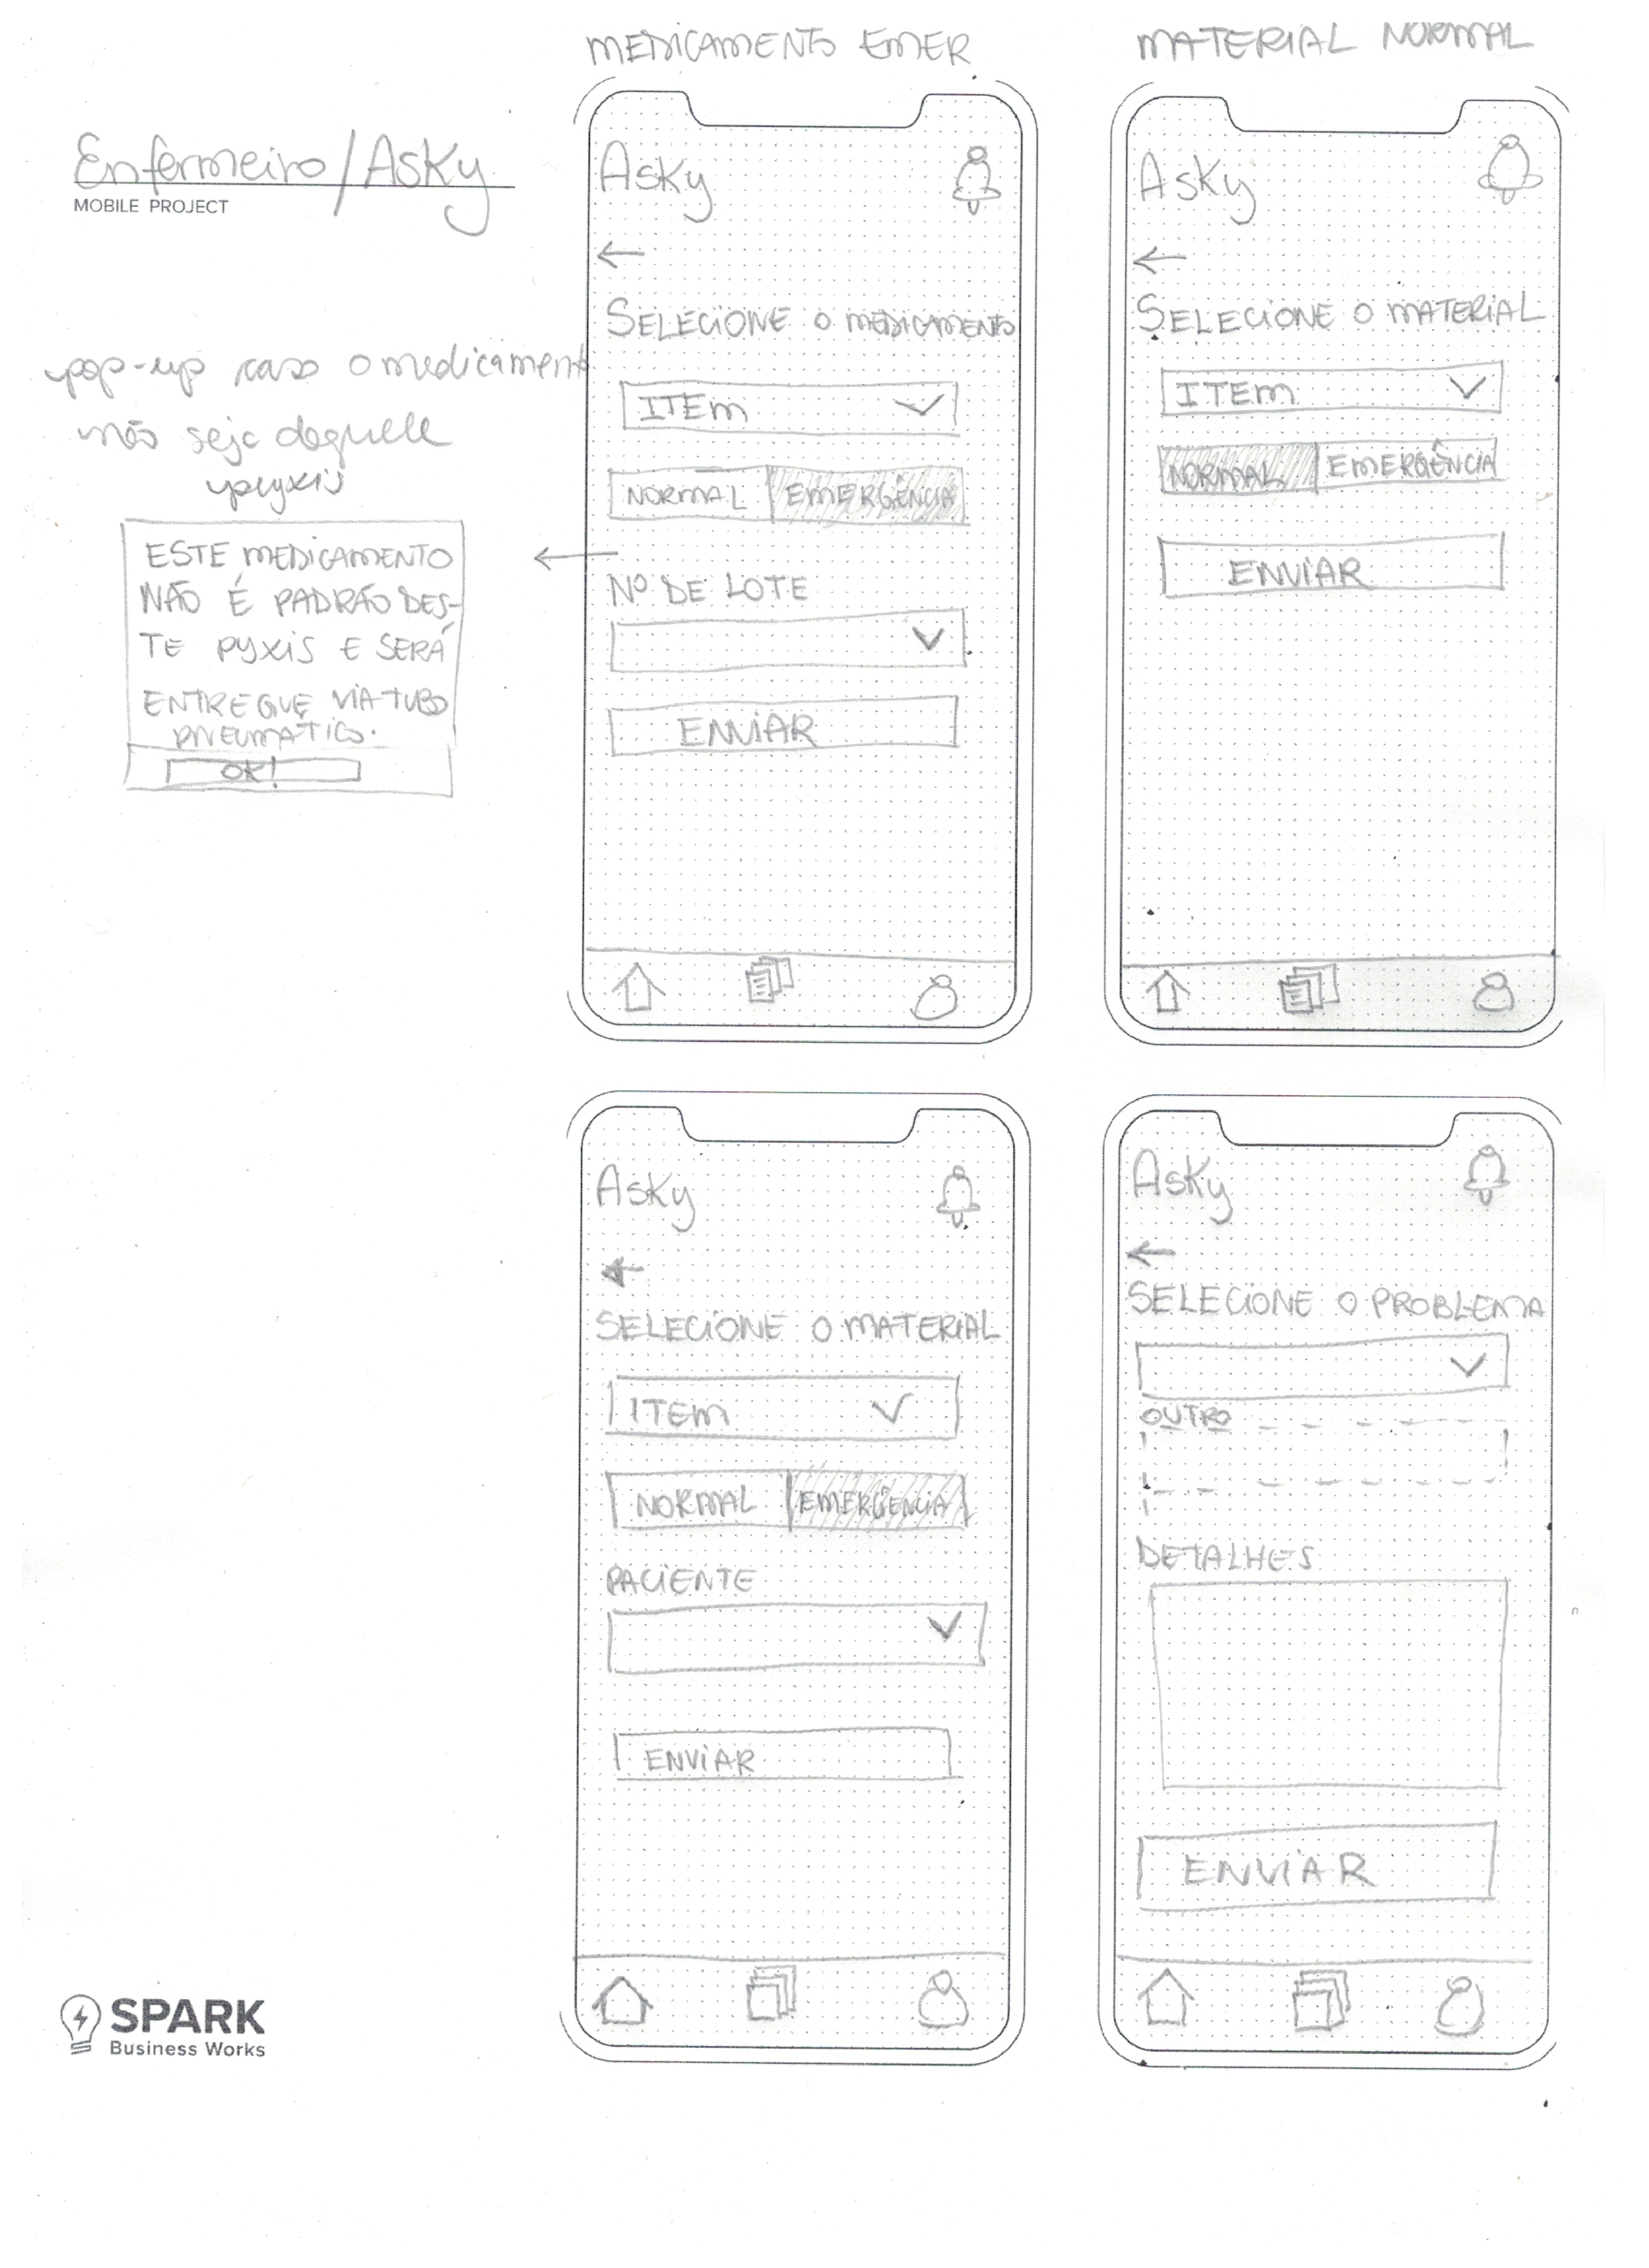 Enfermeiro/Asky
MOBILE PROJECT
pop-up caso o medicament
não seja daquele
pyxis
ESTE MEDICAMENTO
NÃO É PADRÃO DES-
TE PYXIS E SERÁ
ENTREGUE VIA TUBO
PNEUMÁTICO.
OK!
MEDICAMENTO EMER
Asky
SELECIONE O MEDICAMENTO
ITEM
NORMAL EMERGÊNCIA
Nº DE LOTE
ENVIAR
MATERIAL NORMAL
Asky
SELECIONE O MATERIAL
ITEM
NORMAL EMERGÊNCIA
ENVIAR
Asky
SELECIONE O MATERIAL
ITEM
NORMAL EMERGÊNCIA
PACIENTE
ENVIAR
Asky
SELECIONE O PROBLEMA
OUTRO
DETALHES
ENVIAR
SPARK
Business Works